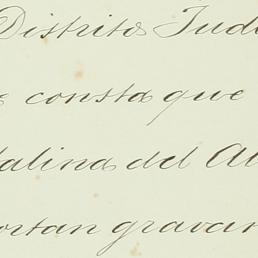 Distrito Jud
consta que
talina del Al
ortan gravam